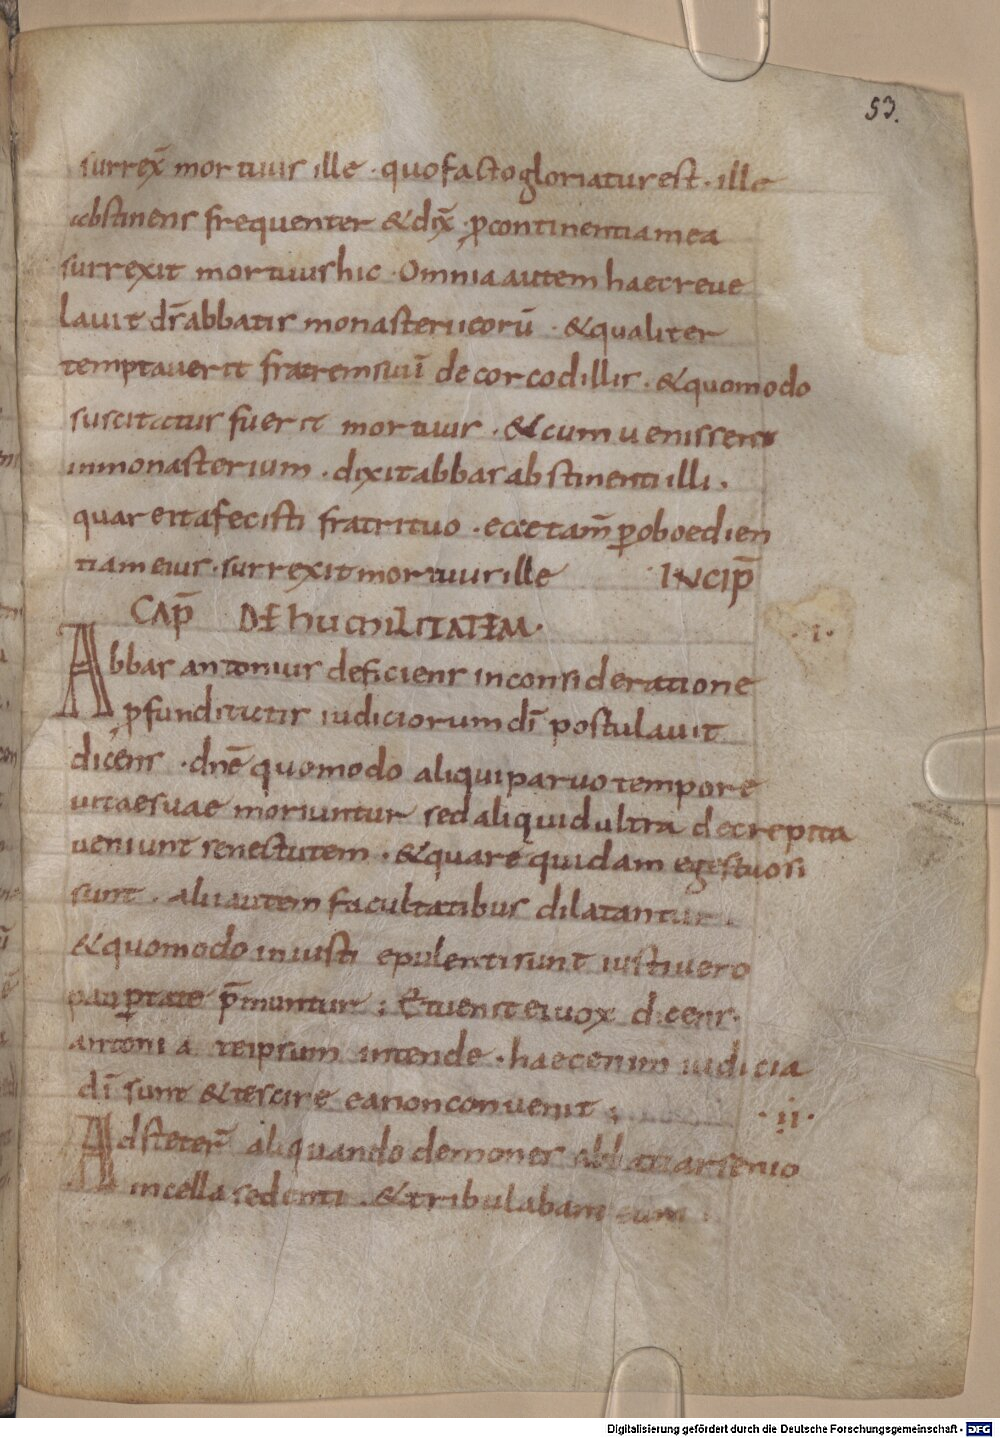 53.
surrex̄ mortuus ille · quo facto gloriatur est · ille
abstinens frequenter & dix̄ · ꝓ continentia mea
surrexit mortuus hic · Omnia autem haec reve
lavit dn̄s abbatis monasterii eorū · & qualiter
temptaverit fratrem suū de corcodillis · & quomodo
suscitatus fuerit mortuus · & cum venissent
in monasterium · dixit abbas abstinenti illi ·
quare ita fecisti fratri tuo · ecce tam̄ ꝑ oboedien
tiam eius · surrexit mortuus ille INCIP̄
CAP̄ DE humiLITATEM ·
· i ·
Abbas antonius deficiens in consideratione
ꝓfunditatis iudiciorum dī postulavit
dicens · dn̄e quomodo aliqui parvo tempore
vitae suae moriuntur sed aliqui dultra decrepita
veniunt senectutem · & quare quidam egestuosi
sunt · alii autem facultatibus dilatantur ·
& quomodo iniusti epulenti sunt iusti vero
pauꝑtate p̄muntur ; Et venit ei vox dicens ·
antoni a teipsum intende · haec enim iudicia
dī sunt & te scire ea non convenit ;
· ii ·
Adsteter̄ aliquando demones abbati arsenio
in cella sedenti · & tribulabant eum ·
Digitalisierung gefördert durch die Deutsche Forschungsgemeinschaft - DFG